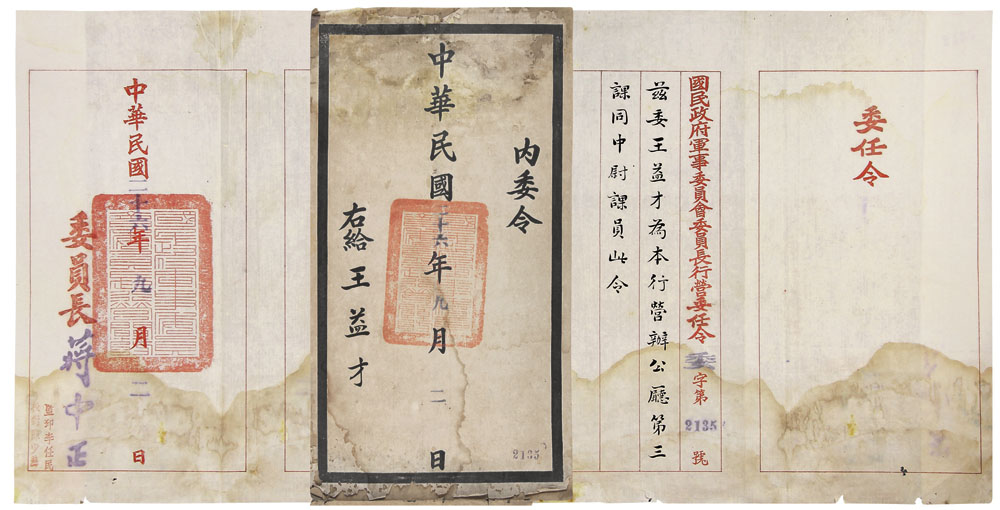 委任令
國民政府軍事委員會委員長行營委任令 委字第2135號
茲委王益才為本行營辦公廳第三
課同中尉課員此令
內委令
中華民國二十六年九月二日
右給王益才
2135
中華民國二十六年九月二日
委員長蔣中正
監印李任民